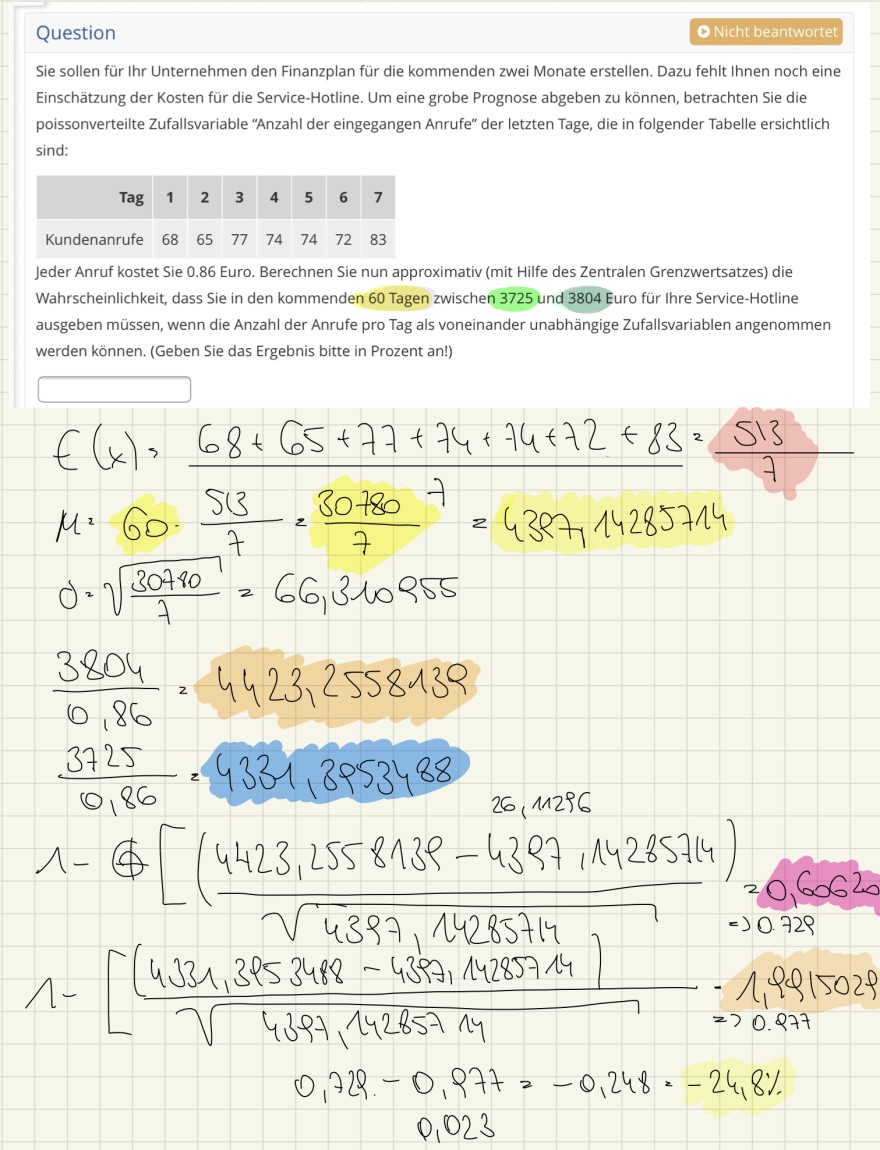 Question
Nicht beantwortet
Sie sollen für Ihr Unternehmen den Finanzplan für die kommenden zwei Monate erstellen. Dazu fehlt Ihnen noch eine
Einschätzung der Kosten für die Service-Hotline. Um eine grobe Prognose abgeben zu können, betrachten Sie die
poissonverteilte Zufallsvariable “Anzahl der eingegangen Anrufe” der letzten Tage, die in folgender Tabelle ersichtlich
sind:
Tag 1 2 3 4 5 6 7
Kundenanrufe 68 65 77 74 74 72 83
Jeder Anruf kostet Sie 0.86 Euro. Berechnen Sie nun approximativ (mit Hilfe des Zentralen Grenzwertsatzes) die
Wahrscheinlichkeit, dass Sie in den kommenden 60 Tagen zwischen 3725 und 3804 Euro für Ihre Service-Hotline
ausgeben müssen, wenn die Anzahl der Anrufe pro Tag als voneinander unabhängige Zufallsvariablen angenommen
werden können. (Geben Sie das Ergebnis bitte in Prozent an!)
E(x) = 68 + 65 + 77 + 74 + 74 + 72 + 83 = 513
7 7
μ = 60 · 513 = 30780 = 4397,14285714
7 7
σ = √30780 = 66,310955
7
3804 = 4423,2558139
0,86
3725 = 4331,3953488
0,86
26,11296
1 - Φ [(4423,2558139 - 4397,14285714) = 0,60620
√4397,14285714 => 0.729
1 - [(4331,3953488 - 4397,14285714) = 1,9915029
√4397,14285714 => 0.977
0,729. - 0,977 = -0,248 = -24,8%
0,023